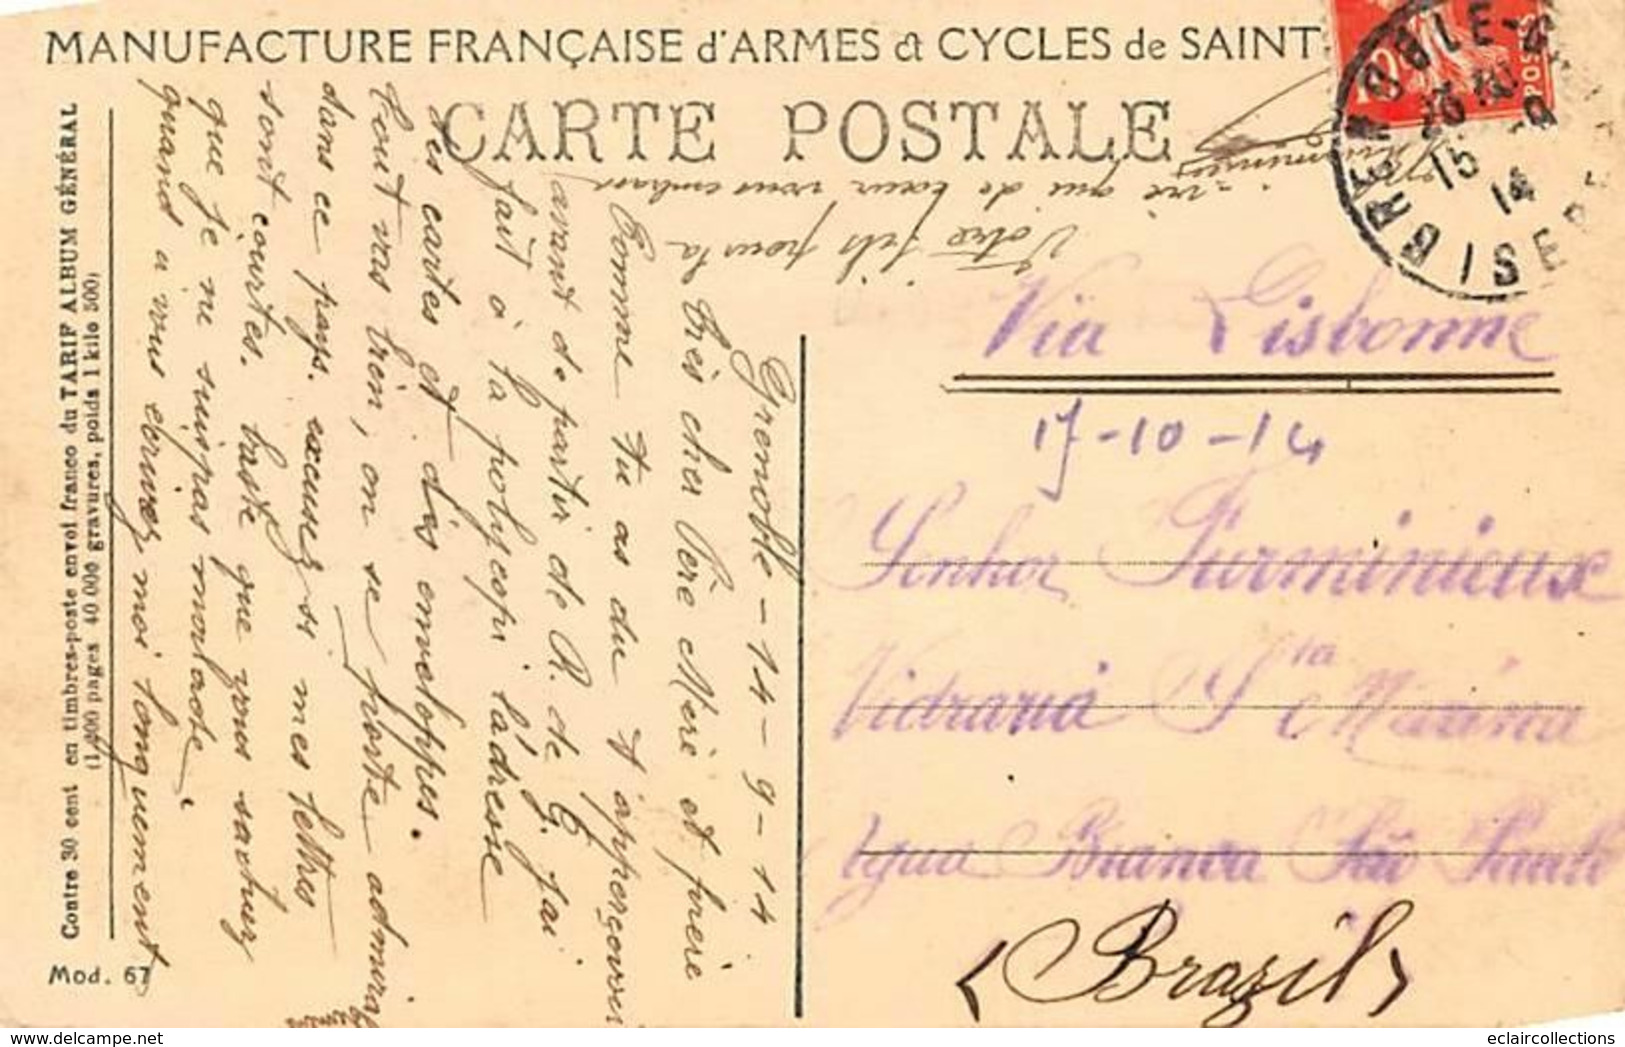 MANUFACTURE FRANÇAISE d'ARMES et CYCLES de SAINT
CARTE POSTALE
Contre 30 cent en timbres-poste envoi franco du TARIF ALBUM GÉNÉRAL
(1.200 pages 40 000 gravures, poids 1 kilo 500)
Mod. 67
POSTES
GRENOBLE
15 - 9
14
ISERE
Grenoble - 14 - 9 - 14
très cher Père Mère et frère
Comme tu as du t'apperçouvoir
avant de partir de R. de G. j'ai
fait à la polycopi l'adresse
des cartes et des enveloppes.
tout vas bien, on se porte admirabl
dans ce pays. excusez si mes lettres
sont courtes. baste que vous sachiez
que je ne suis pas malade
quand a vous écrivez moi longuement
Votre fils pour la
vie qui de cœur vous embrasse
Via Lisbonne
17-10-14
Senhor Furminieux
Vidraria Sta Marina
Agua Branca São Paulo
(Brazil)
eclaircollections